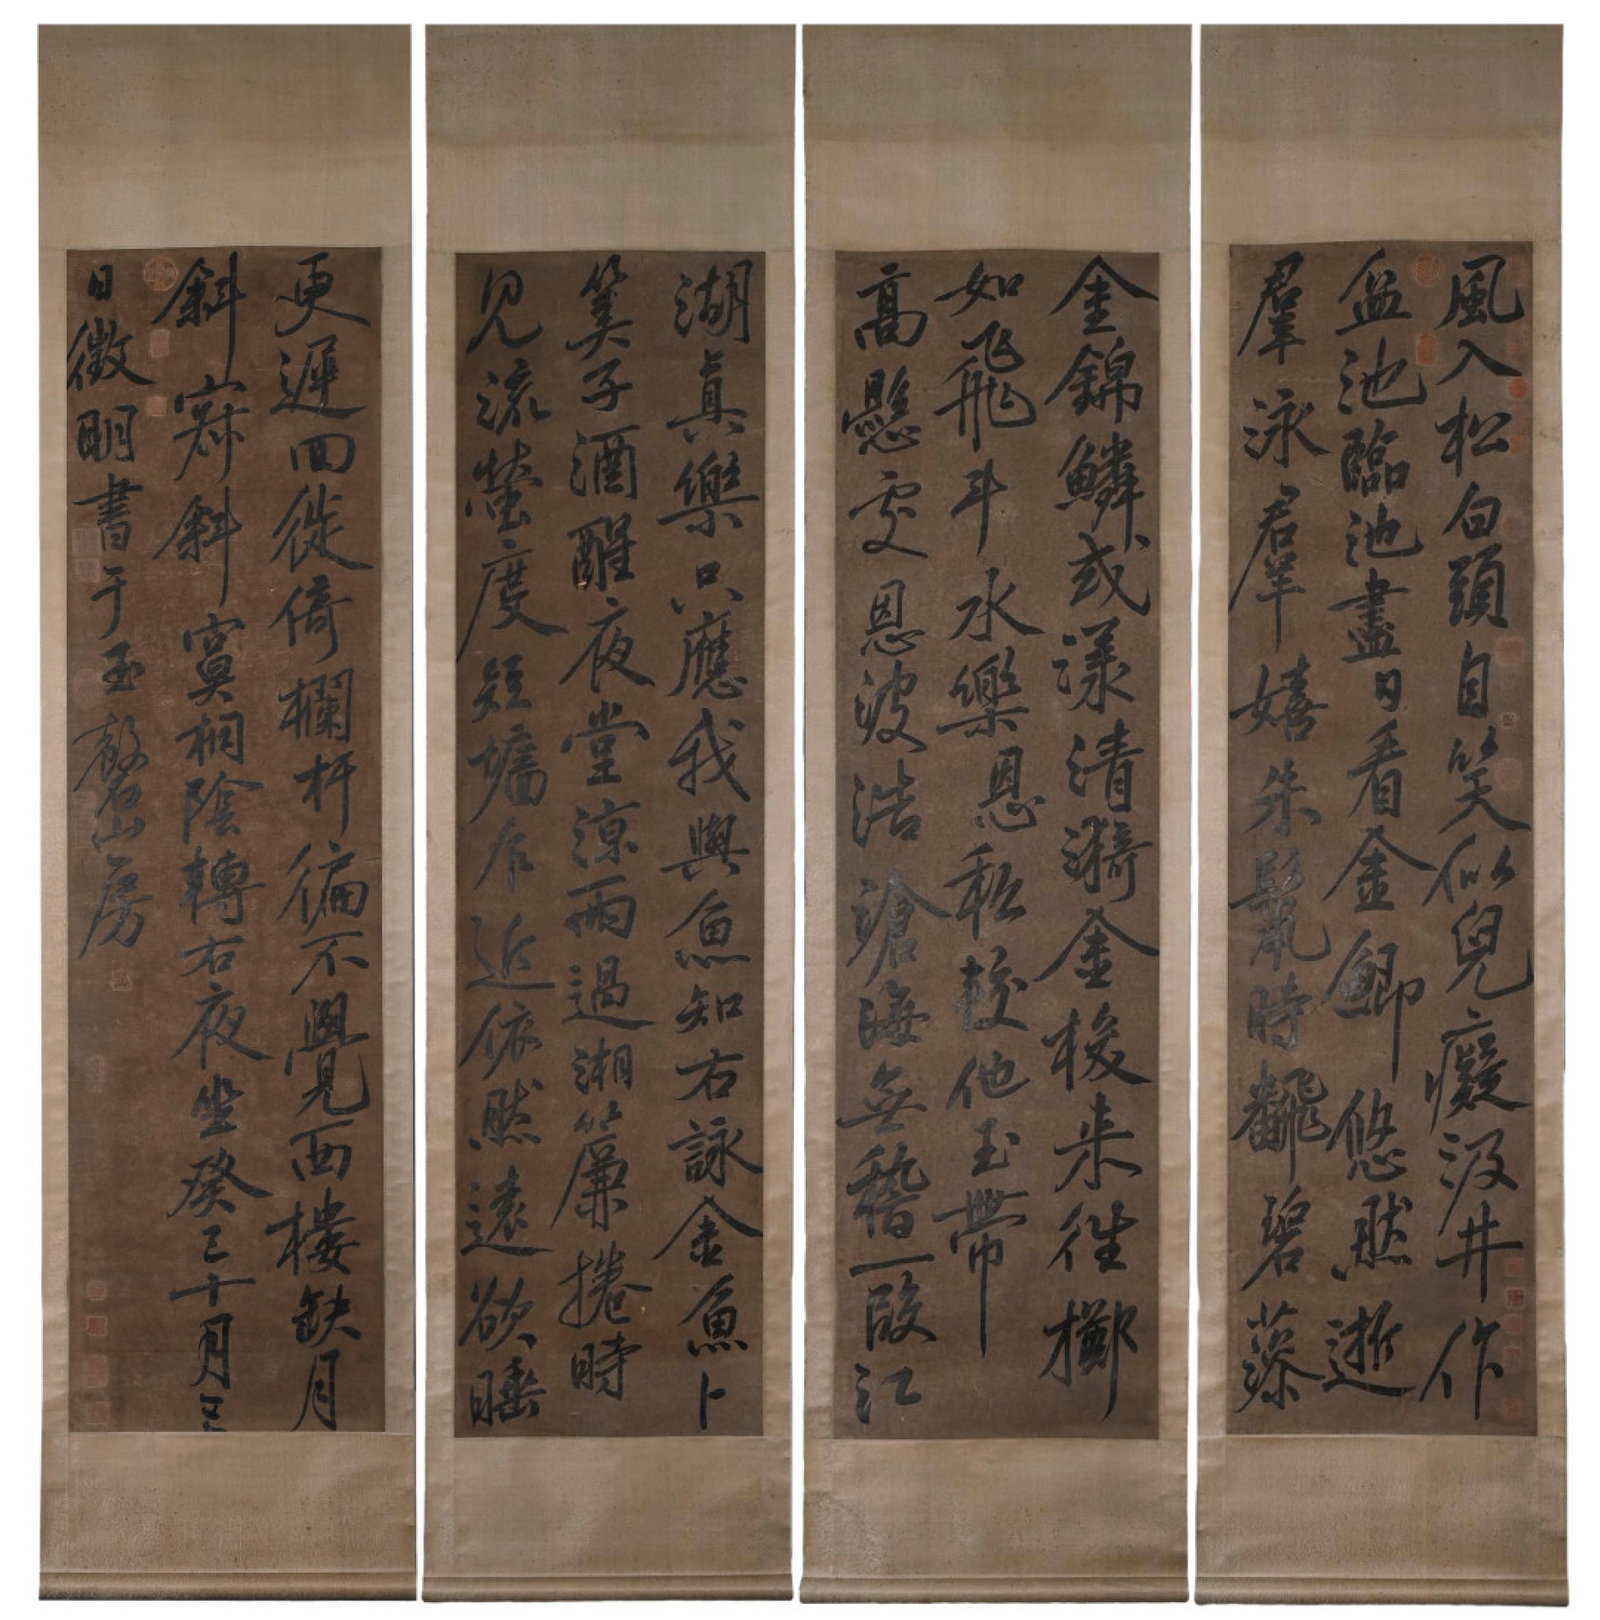 風入松白頭自笑似兒癡汲井作
盆池臨池盡日看金鯽悠然逝
羣泳羣嬉朱鬣時翻碧藻
金錦鱗或漾清漪金梭来徃擲
如飛斗水樂恩私較他玉帶
高懸處恩波浩滄海無稽一段江
湖真樂只應我與魚知右詠金魚卜
筭子酒醒夜堂涼雨過湘簾捲時
見流螢度短墻乍近依然遠欲睡
更遲回徙倚欄杆徧不覺西樓缺月
斜斜寞桐陰轉右夜坐癸巳十月三
日徵明書于玉磬山房